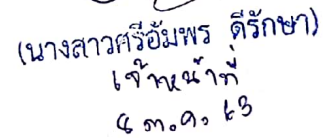 (นางสาวศรีอัมพร ดีรักษา)
เจ้าหน้าที่
4 ต.ค. 63